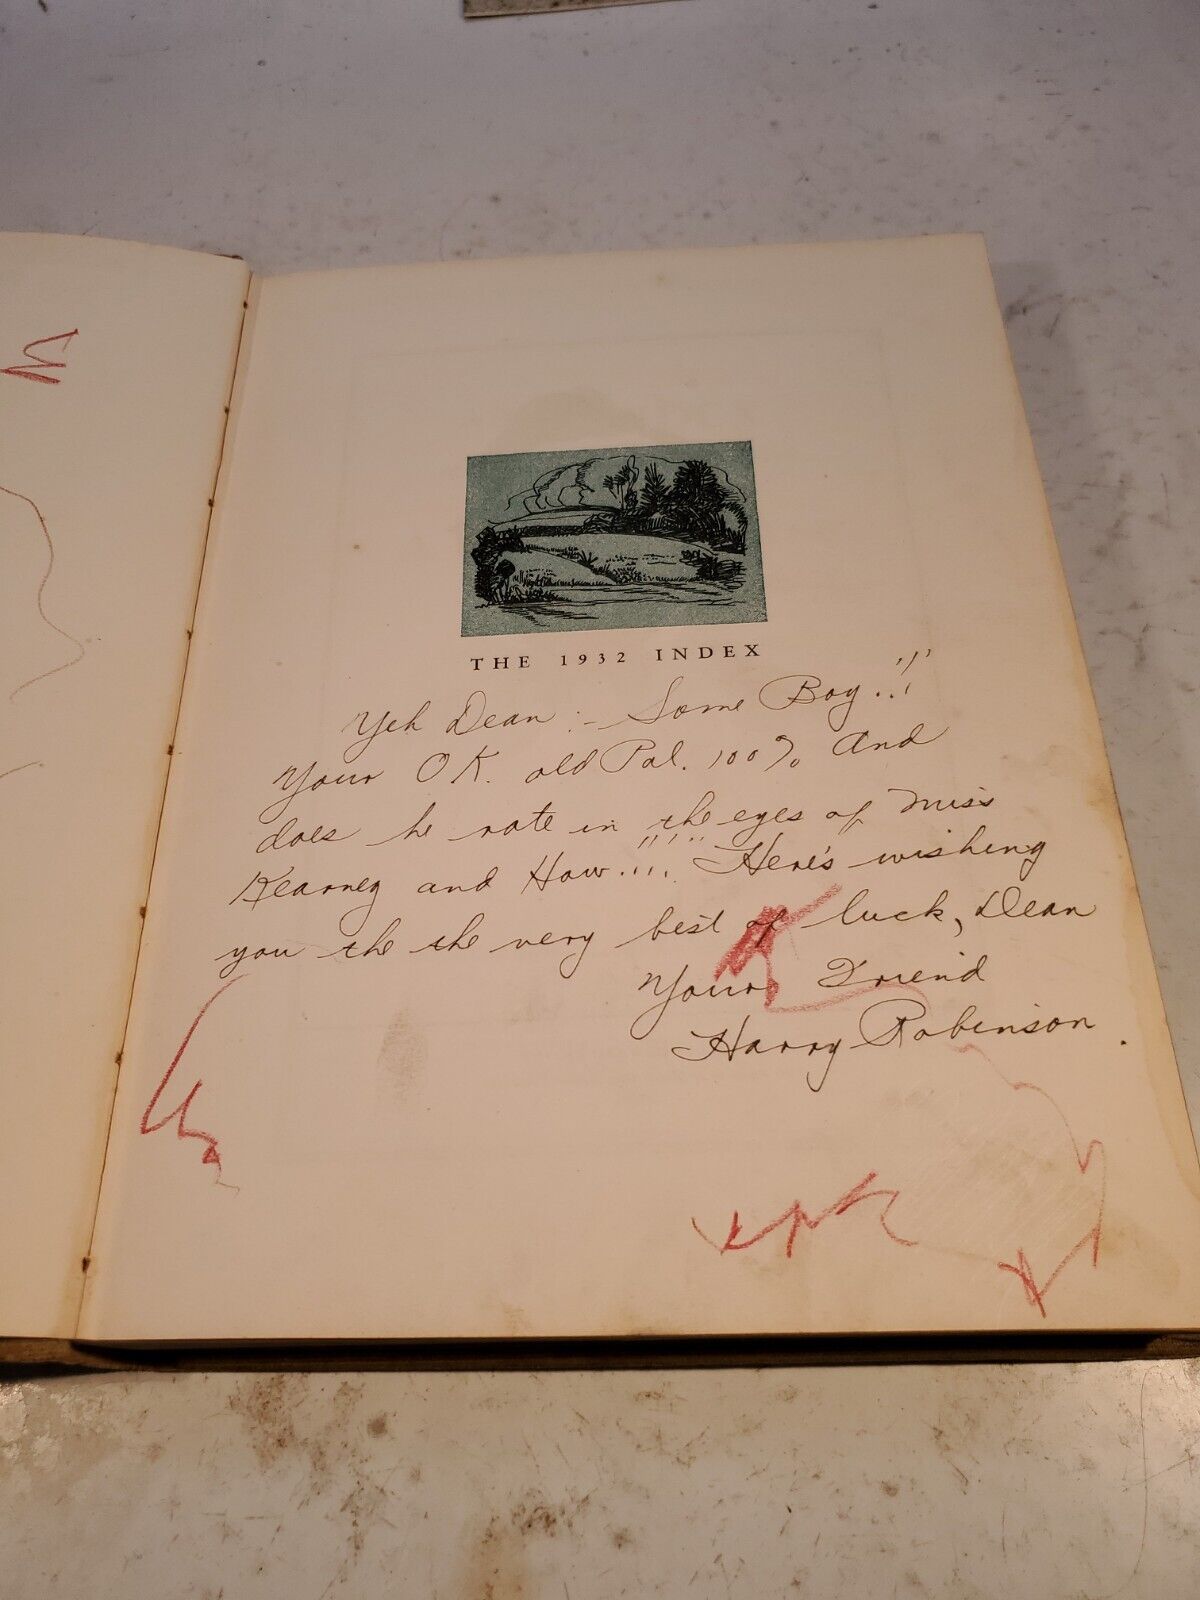 THE 1932 INDEX
Yeh Dean :- Some Boy..!!
Your O K. old Pal. 100% And
does he rate in the eyes of Miss
Kearney and How..!!!! Here's wishing
you the the very best of luck, Dean
Your Friend
Harry Robinson.